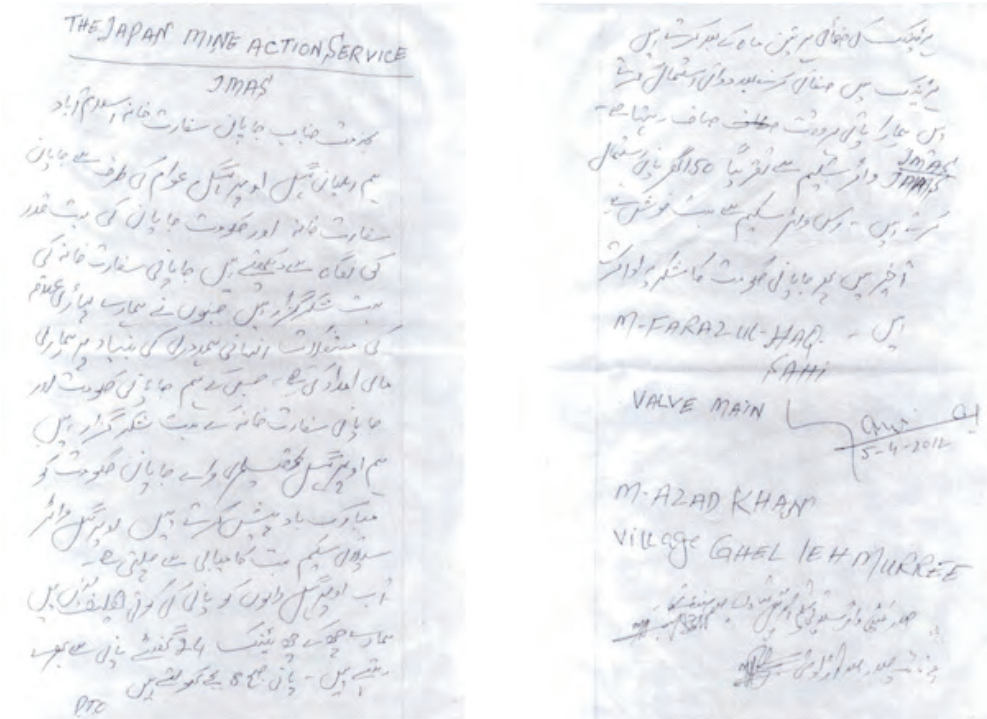 THE JAPAN MINE ACTION SERVICE
JMAS
بخدمت جناب جاپانی سفارت خانہ اسلام آباد
ہم اہلیان گہل اوپر گہل عوام کی طرف سے جاپان
سفارت خانہ اور حکومت جاپان کی بہت قدر
کی نگاہ سے دیکھتے ہیں جاپانی سفارت خانہ کی
بہت شکر گزار ہیں جنہوں نے ہمارے پہاڑی علاقہ
کی مشکلات انتہائی ہمدردی کی بنیاد پر ہماری
مالی امداد کی ہے - جس کے ہم جاپانی حکومت اور
جاپانی سفارت خانہ کے بہت شکر گزار ہیں
ہم اوپر گہل والے جاپانی حکومت کو
مبارک باد پیش کرتے ہیں اوپر گہل واٹر
سپلائی سکیم بہت کامیابی سے چلتی ہے -
اب اوپر گہل والوں کو پانی کی کوئی تکلیف نہیں
ہمارے کے ٹینک 24 گھنٹے پانی سے بھرے
رہتے ہیں - پانی صبح 8 بجے کھولتے ہیں
PTO
ہر ٹینک کی صفائی ہر تین ماہ کے بعد کرتے ہیں
ہر ٹینک میں صفائی کے بعد دوائی استعمال کرتے
ہیں ہمارا پانی ہر وقت صاف رہتا ہے -
JMAS واٹر سکیم سے تقریباً 150 گھر پانی استعمال
کرتے ہیں - لوگ واٹر سکیم سے بہت خوش ہے
آخر میں ہم جاپانی حکومت کا شکریہ ادا کرتے
ہیں -
M-FARAZUL-HAQ
VALVE MAIN
5-4-2012
M-AZAD KHAN
Village GHEL IEH MURREE